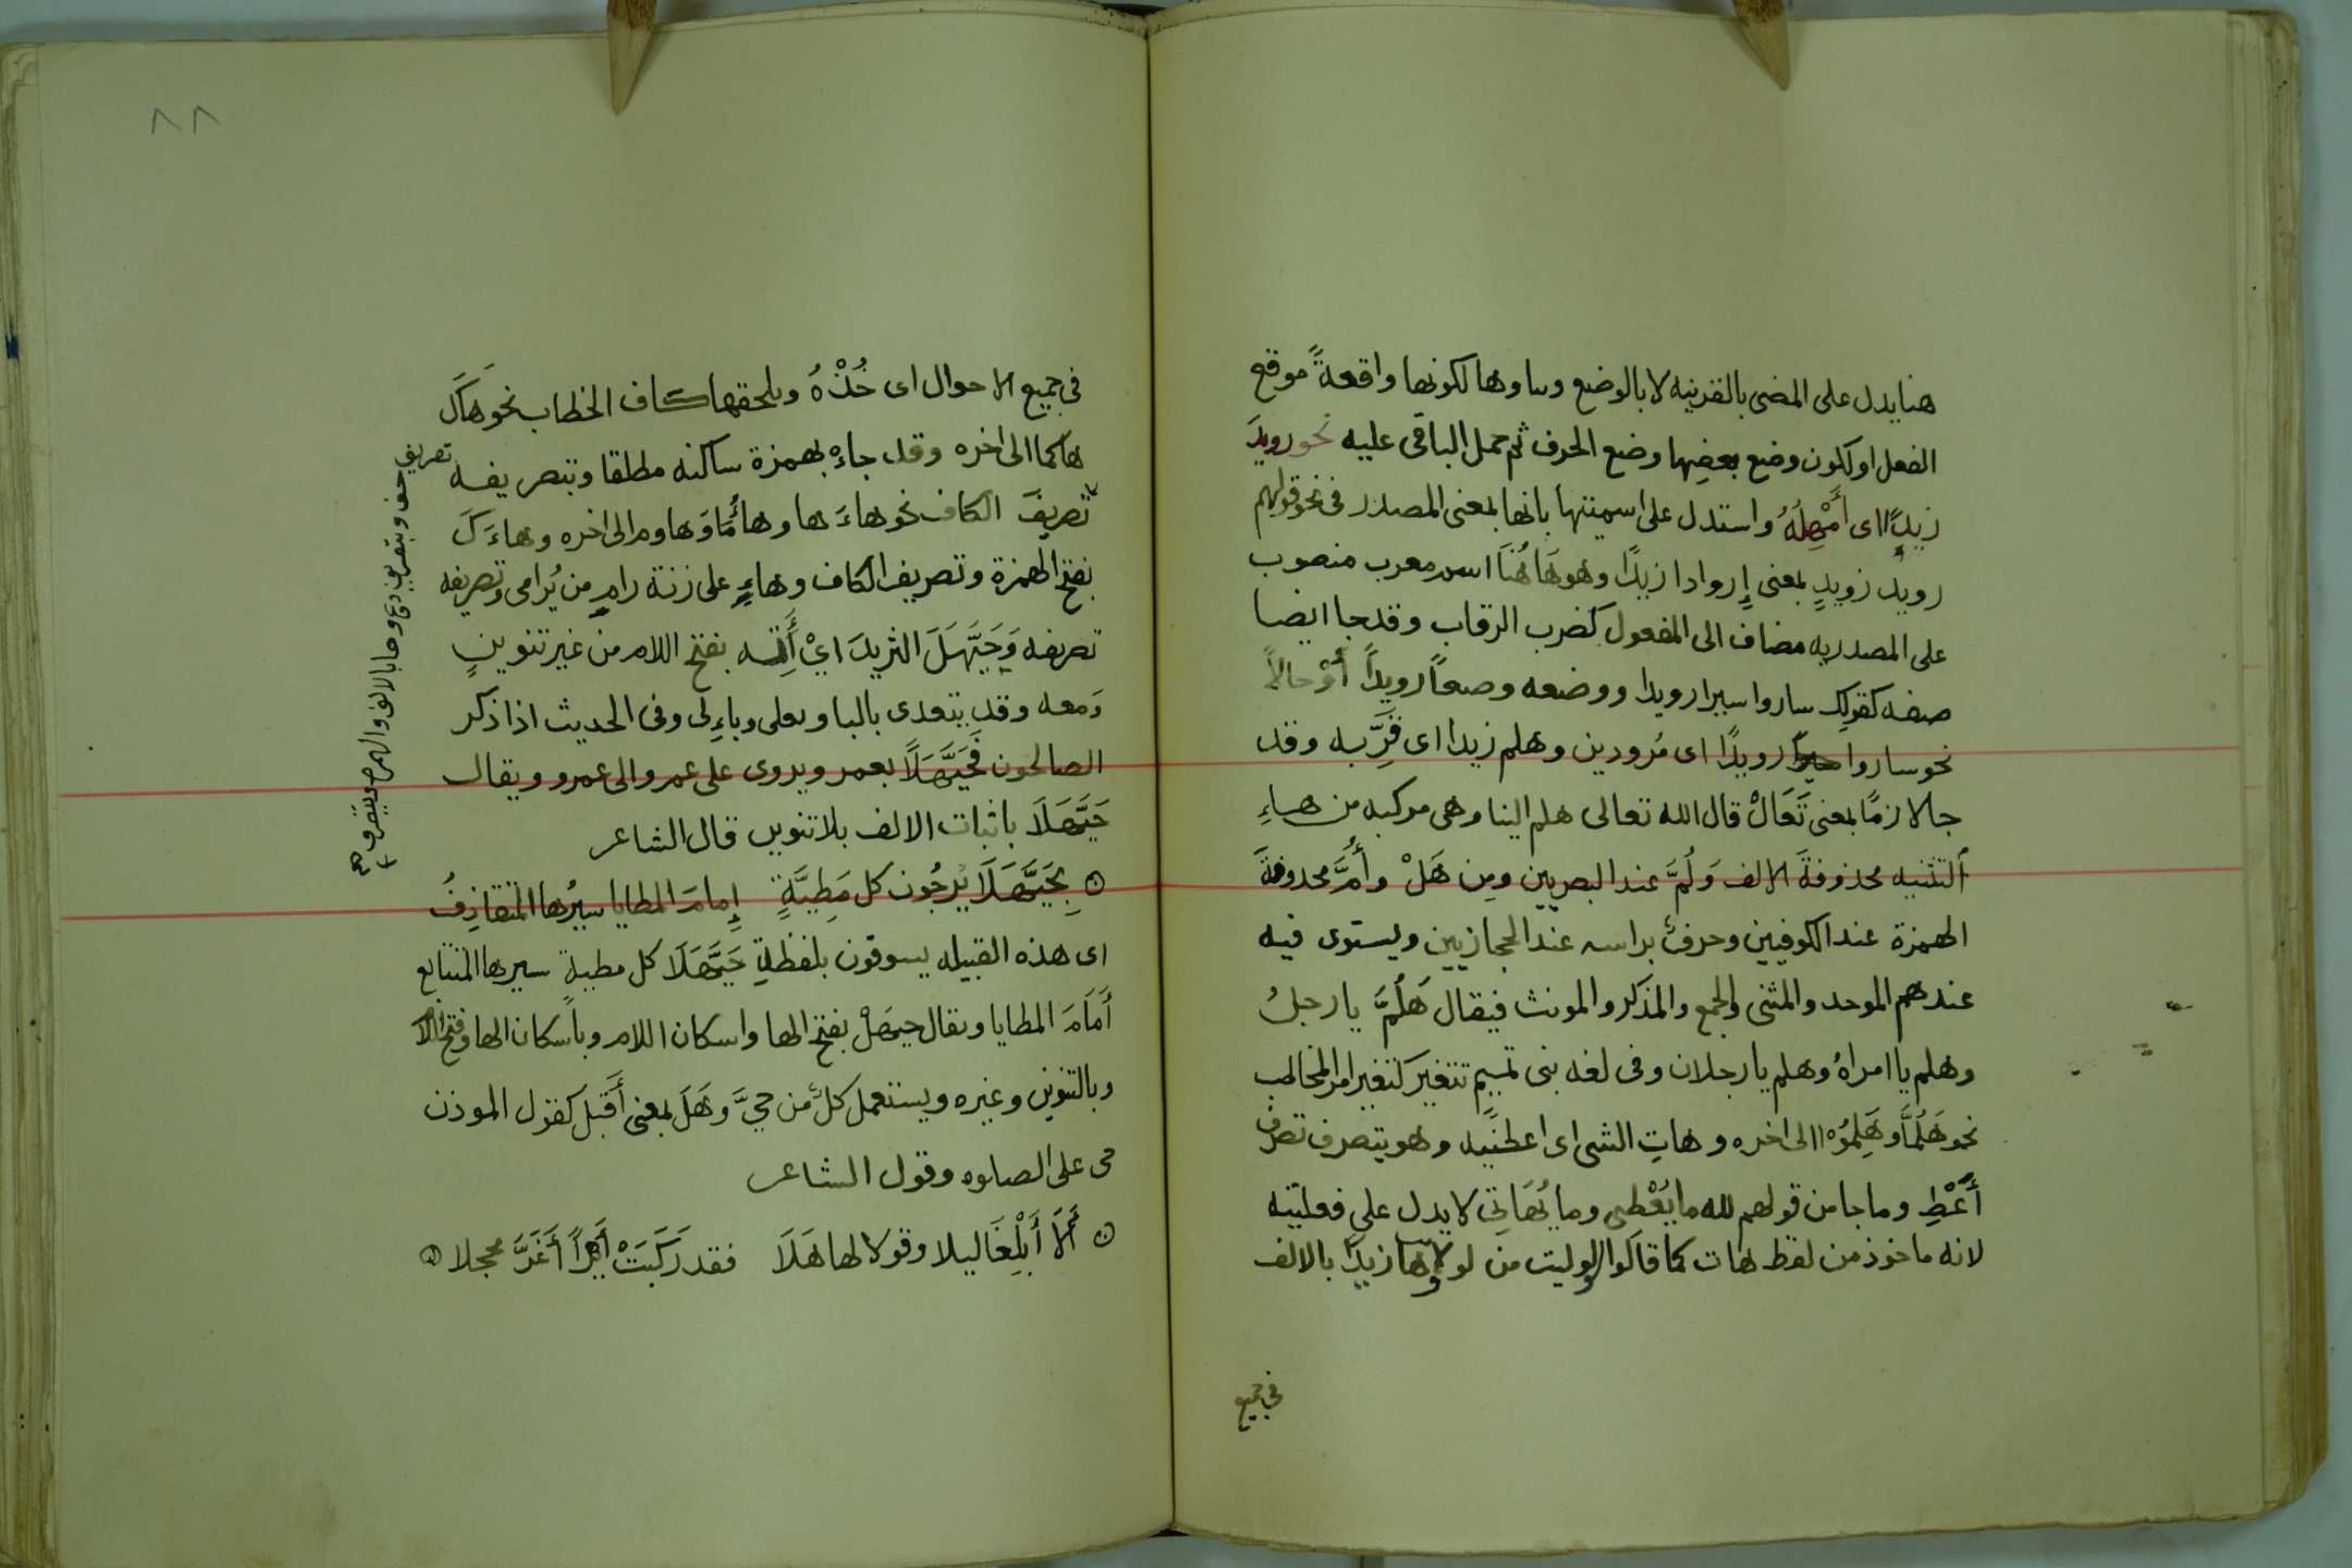 هنا يدل على المضى بالقرينه لا بالوضع وبناوها لكونها واقعةً موقع
الفعل او لكون وضع بعضِها وضع الحرف ثم حمل الباقى عليه نحو رويدَ
زيدًا اى أَمْهِلهُ واستدل على اسميتها بانها بمعنى المصدر فى نحو قولهم
رويد زويدٍ بمعنى إِروادا زيدًا وهو هَاهُنَا اسم معرب منصوب
على المصدريه مضاف الى المفعول كضرب الرقاب وقد جا ايضا
صفه كقولك ساروا سيرا رويدا ووضعه وصعاً رويداً أَوْ حالاً
نحو ساروا رويدًا اى مُرودين وهلم زيدا اى قَرِّبه وقد
جا لازمًا بمعنى تَعَالَ قال الله تعالى هلم الينا وهى مركبه من هاءِ
التثنيه محذوفةَ الالف وَلُمَّ عند البصريين ومِن هَلْ وأُمَّ محذوفةَ
الهمزة عند الكوفيين وحرفٌ براسه عند الحجازيين ويستوى فيه
عندهم الموحد والمثنى والجمع والمذكر والمونث فيقال هَلُمَّ يا رجلُ
وهلم يا امراهُ وهلم يا رجلان وفى لغه بنى تميم تتغير كتغير امر المخاطب
نحو هَلُمَّا وهَلِمُوْا الى اخره وهاتِ الشى اى اعطنيه وهو يتصرف تصرف
أَعْطِ وما جا من قولهم لله ما يُعْطِى وما يُهَاتِى لا يدل على فعليته
لانه ماخوذ من لفظ هات كما قالوا لوليت من لولا وها زيدًا بالالف
فى جميع
٨٨
فى جميع الاحوال اى خُذْهُ ويلحقها كاف الخطاب نحو هَاكَ
هاكما الى اخره وقد جاءْ بهمزة ساكنه مطلقا وبتصريفه
تصريفَ الكاف نحو هاءَ ها وهاؤُمَا وهاوم الى اخره وهاءَكَ
بفتح الهمزة وتصريف الكاف وهاءٍ على زنة رامٍ من يُرامى وتصريفه
تصريفه وَحَيَّهَلَ الثريدَ اىْ أَئْتِه بفتح اللام من غير تنوينٍ
وَمعه وقد يتعدى بالبا وبعلى وبإِلى وفى الحديث اذا ذكر
الصالحون فَحَيَّهَلًا بعمر ويروى على عمر والى عمرو ويقال
حَيَّهَلَا باثبات الالف بلا تنوين قال الشاعر
بِحَيَّهَلَا يُرجُون كل مَطِيَّةٍ إِمامَ المطايا سيرُها المتقاذِفُ
اى هذه القبيله يسوقون بلفظةِ حَيَّهَلَا كل مطية سيرها المتتابع
أَمَامَ المطايا ويقال حيهَلْ بفتح الها واسكان اللام وباسكان الها وفتح اللام
وبالتنوين وغيره ويستعمل كلٌ من حىَّ وهَلَ بمعنى أَقبل كقول الموذن
حى على الصلوه وقول الشاعر
أَلَا أَبْلِغَا ليلا وقولا لها هَلَا فقد رَكَبَتْ أَيْراً أَغَرَّ محجلا